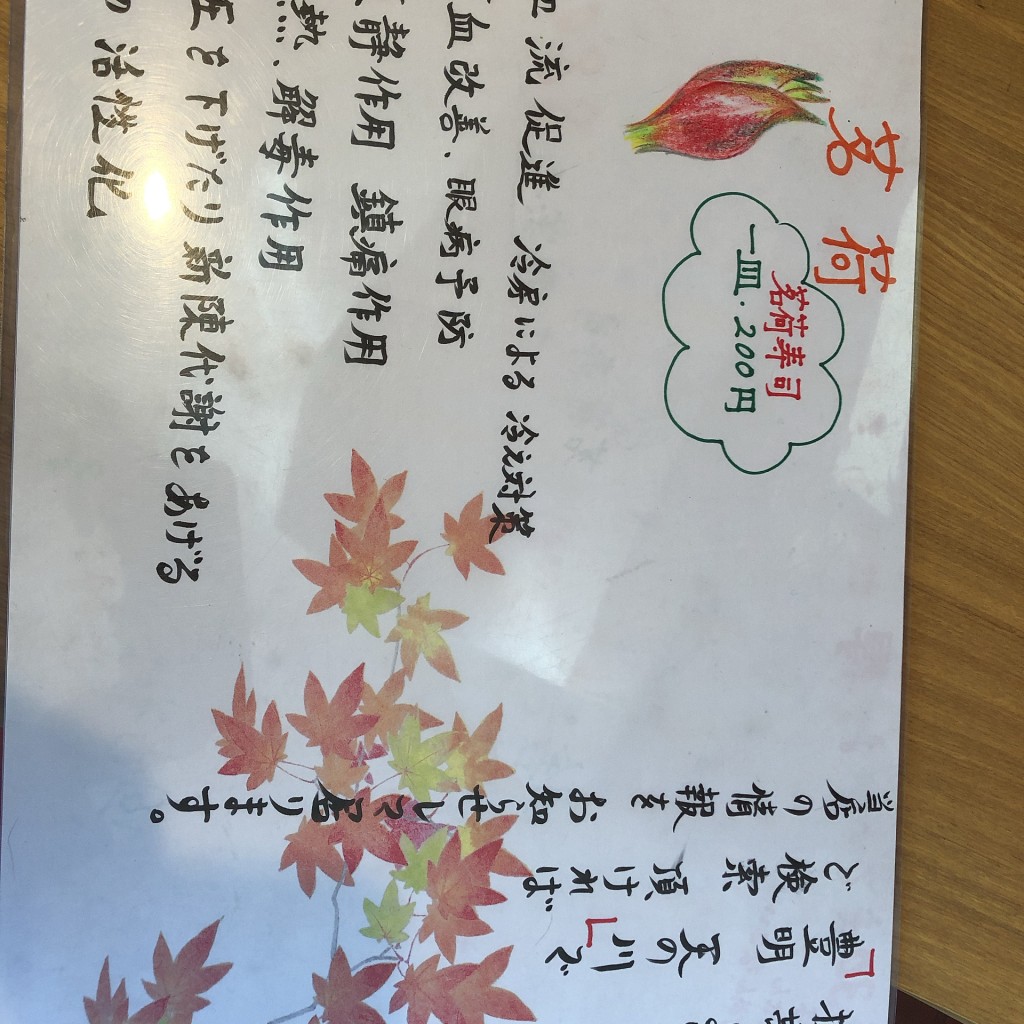 茗荷
茗荷寿司
一皿.200円
流促進 冷房による冷え対策
血改善、眼病予防
静作用 鎮痛作用
熱、解毒作用
圧を下げたり新陳代謝をあげる
の活性化
「豊明 天の川」で
ご検索頂ければ
当店の情報をお知らせして居ります。